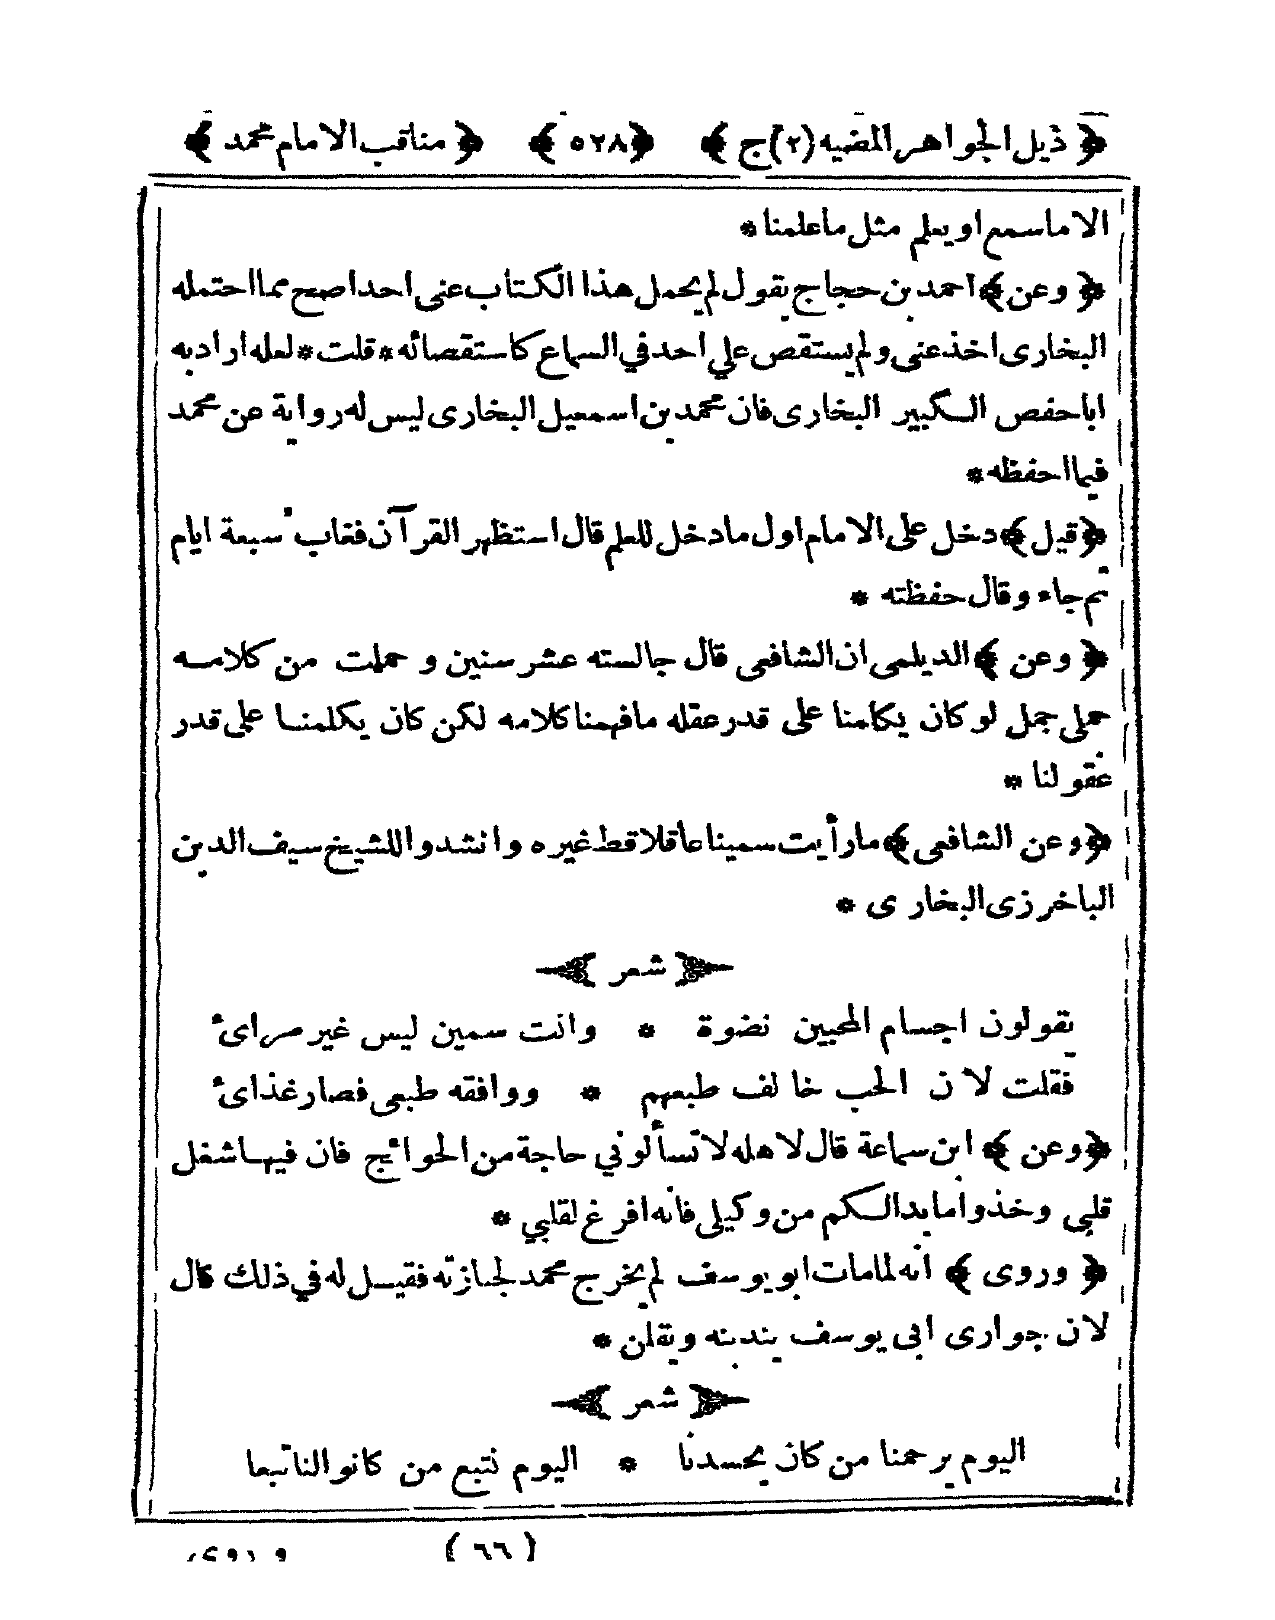 ﴿ ذيل الجواهر المضيه (٢) ج ﴾ ﴿ ٥٢٨ ﴾ ﴿ مناقب الامام محمد ﴾
الا ماسمع او يعلم مثل ماعلمنا *
﴿ وعن ﴾ احمد بن حجاج يقول لم يحمل هذا الكتاب عنى احد اصح مما احتمله
البخارى اخذ عنى ولم يستقص علي احد في السماع كاستقصائه * قلت * لعله اراد به
ابا حفص الكبير البخارى فان محمد بن اسمعيل البخارى ليس له رواية عن محمد
فيما احفظه *
﴿ قيل ﴾ دخل على الامام اول مادخل للعلم قال استظهر القرآن فغاب سبعة ايام
ثم جاء وقال حفظته *
﴿ وعن ﴾ الديلمى ان الشافعى قال جالسته عشر سنين و حملت من كلامه
حملى جمل لو كان يكامنا على قدر عقله مافهمنا كلامه لكن كان يكلمنا على قدر
عقولنا *
﴿ وعن الشافعى ﴾ مارأيت سمينا عاقلا قط غيره وانشدوا للشيخ سيف الدين
الباخرزى البخارى *
شعر
يقولون اجسام المحبين نضوة * وانت سمين ليس غير مرائ
فقلت لان الحب خالف طبعهم * ووافقه طبعى فصار غذائ
﴿ وعن ﴾ ابن سماعة قال لاهله لا تسألوني حاجة من الحوائج فان فيها شغل
قلبي وخذوا مابدالكم من وكيلى فانه افرغ لقلبي *
﴿ وروى ﴾ انه لمامات ابو يوسف لم يخرج محمد لجنازته فقيل له في ذلك قال
لان جوارى ابى يوسف يندبنه ويقلن *
شعر
اليوم يرحمنا من كان يحسدنا * اليوم نتبع من كانوا لنا تبعا
( ٦٦ ) وروى